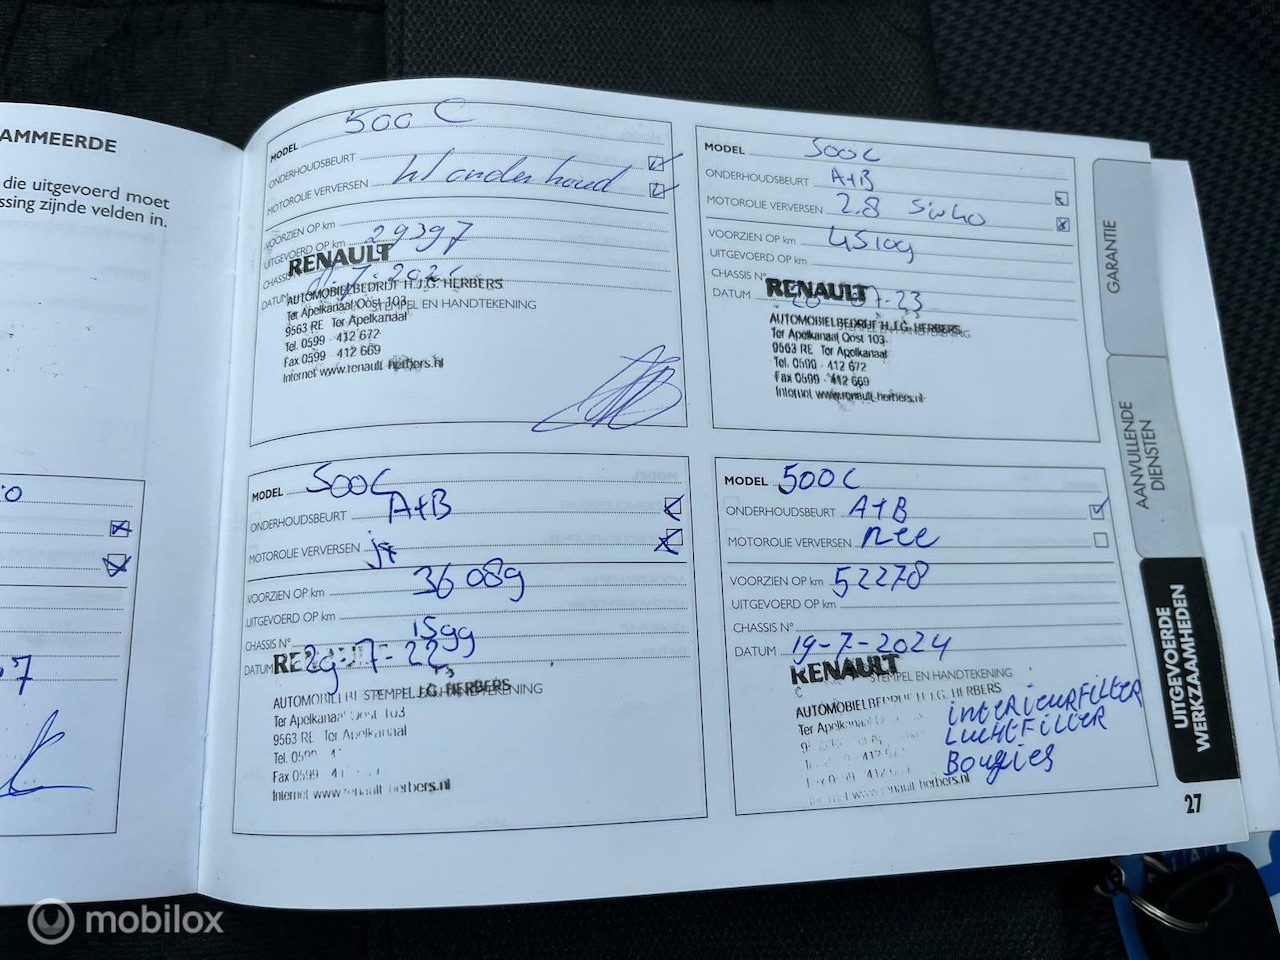 AMMEERDE
die uitgevoerd moet
ssing zijnde velden in.
MODEL 500 C
ONDERHOUDSBEURT
MOTOROLIE VERVERSEN kl onderhoud
VOORZIEN OP km
UITGEVOERD OP km 29397
CHASSIS
DATUM
RENAULT
AUTOMOBIELBEDRIJF H.J.G. HERBERS
Ter Apelkanaal Oost 103
STEMPEL EN HANDTEKENING
9563 RE Ter Apelkanaal
Tel. 0599 - 412 672
Fax 0599 - 412 669
Internet www.renault-herbers.nl
MODEL 500C
ONDERHOUDSBEURT A+B
MOTOROLIE VERVERSEN 2.8
VOORZIEN OP km 45109
UITGEVOERD OP km
CHASSIS N°
DATUM 07-23
RENAULT
AUTOMOBIELBEDRIJF H.J.G. HERBERS
STEMPEL EN HANDTEKENING
Ter Apelkanaal Oost 103
9563 RE Ter Apelkanaal
Tel. 0599 - 412 672
Fax 0599 - 412 669
Internet www.renault-herbers.nl
MODEL 500C
ONDERHOUDSBEURT A+B
MOTOROLIE VERVERSEN ja
VOORZIEN OP km 36089
UITGEVOERD OP km
CHASSIS N° 1599
DATUM 29-7-22
STEMPEL EN HANDTEKENING
J.G. HERBERS
Ter Apelkanaal Oost 103
9563 RE Ter Apelkanaal
Tel. 0599
Fax 0599
Internet www.renault-herbers.nl
MODEL 500C
ONDERHOUDSBEURT A+B
MOTOROLIE VERVERSEN nee
VOORZIEN OP km 52278
UITGEVOERD OP km
CHASSIS N°
DATUM 19-7-2024
RENAULT
STEMPEL EN HANDTEKENING
AUTOMOBIELBEDRIJF H.J.G. HERBERS
Ter Apelkanaal
interieurfilter
Luchtfilter
Bougies
www.renault-herbers.nl
GARANTIE
AANVULLENDE
DIENSTEN
UITGEVOERDE
WERKZAAMHEDEN
27
mobilox